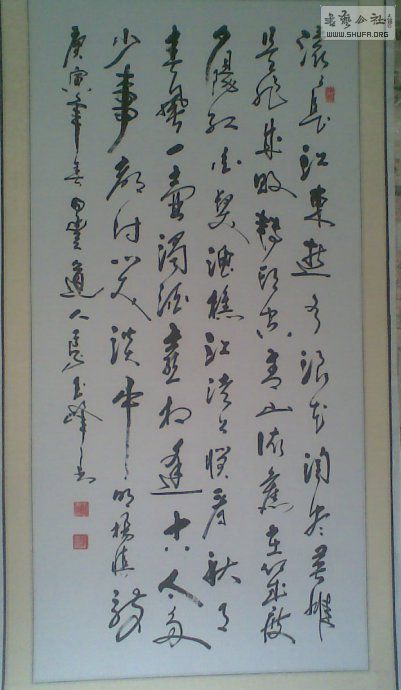 书艺公社
WWW.SHUFA.ORG
滚滚長江東逝水浪花淘尽英雄
是非成敗轉頭空青山依舊在几度
夕陽红白发渔樵江渚上惯看秋月
春風一壶濁酒喜相逢古今多
少事都付笑談中明楊慎詞
庚寅年春道人玉峰书